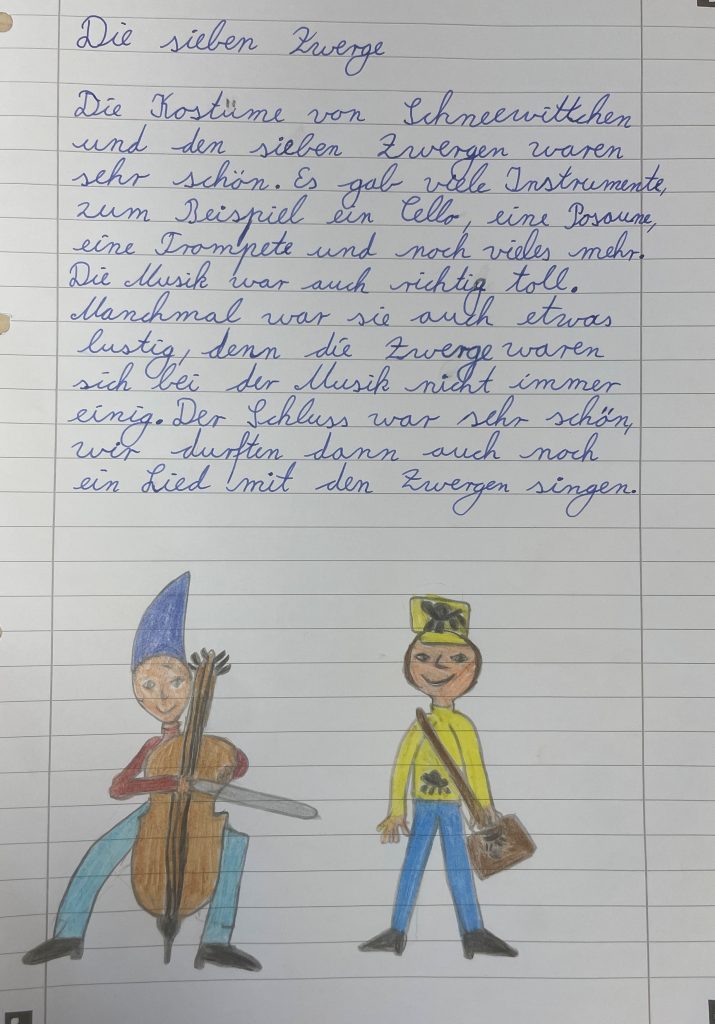 Die sieben Zwerge
Die Kostüme von Schneewittchen
und den sieben Zwergen waren
sehr schön. Es gab viele Instrumente,
zum Beispiel ein Cello, eine Posaune,
eine Trompete und noch vieles mehr.
Die Musik war auch richtig toll.
Manchmal war sie auch etwas
lustig, denn die Zwerge waren
sich bei der Musik nicht immer
einig. Der Schluss war sehr schön,
wir durften dann auch noch
ein Lied mit den Zwergen singen.